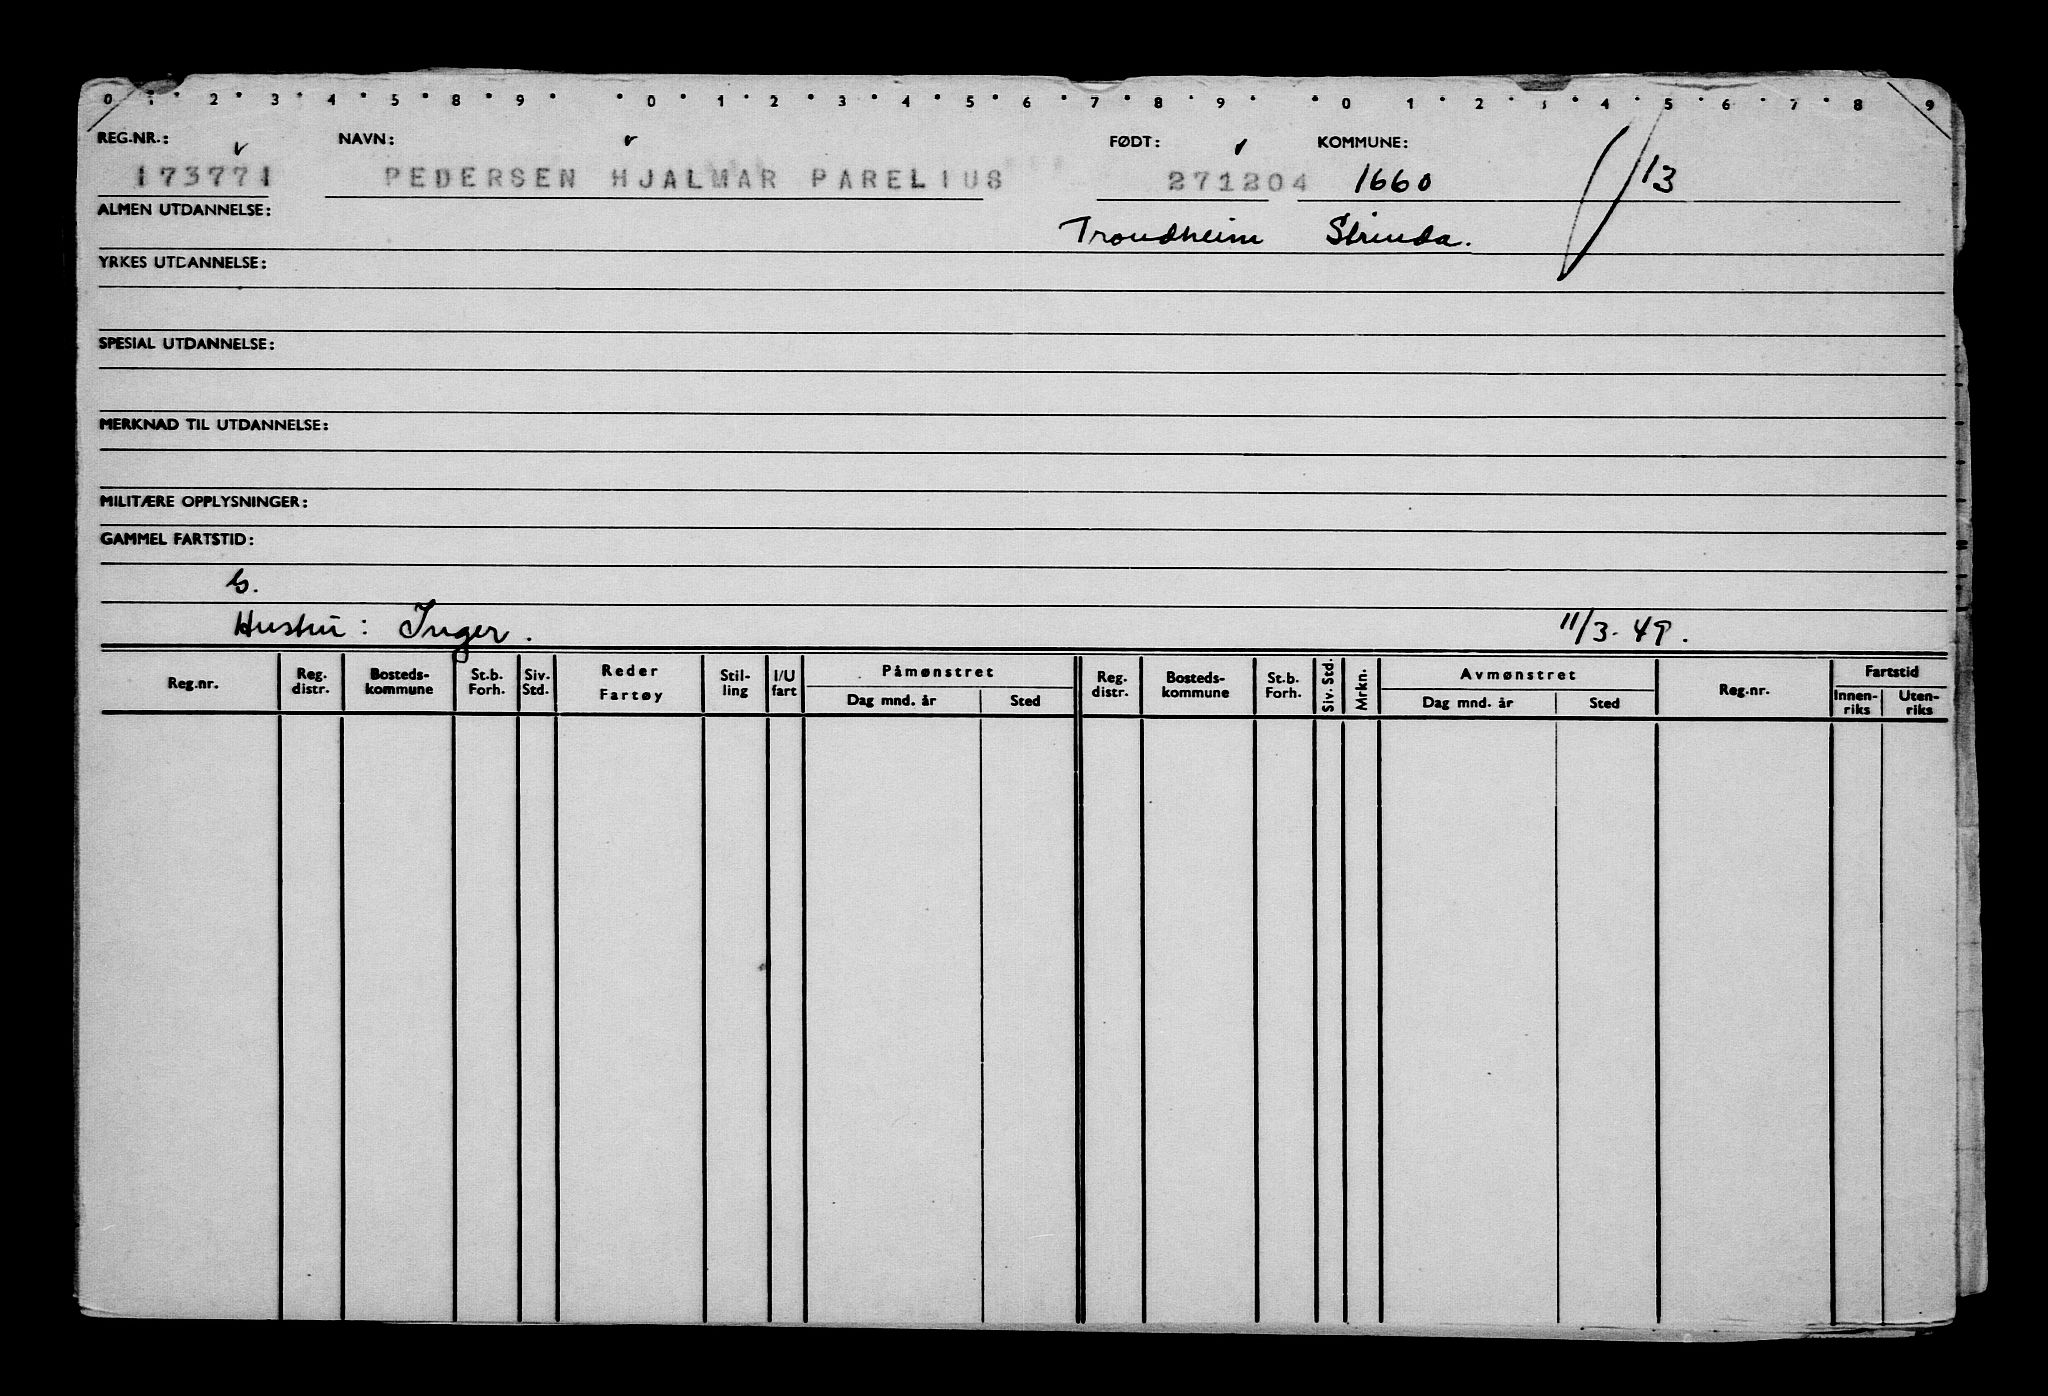 0 1 2 3 4 5 8 9 0 1 2 3 4 5 6 7 8 9 0 1 2 3 4 5 6 7 8 9
REG.NR.: NAVN: FØDT: KOMMUNE:
173771 PEDERSEN HJALMAR PARELIUS 271204 1660 13
ALMEN UTDANNELSE: Trondheim Strinda.
YRKES UTDANNELSE:
SPESIAL UTDANNELSE:
MERKNAD TIL UTDANNELSE:
MILITÆRE OPPLYSNINGER:
GAMMEL FARTSTID:
G.
Hustru: Inger. 11/3.49.
Reg.nr. Reg. distr. Bosteds-kommune St.b. Forh. Siv. Std. Reder Fartøy Stil-ling I/U fart Påmønstret Dag mnd. år Sted Reg. distr. Bosteds-kommune St.b. Forh. Siv. Std. Mrkn. Avmønstret Dag mnd. år Sted Reg.nr. Fartstid Innen-riks Uten-riks